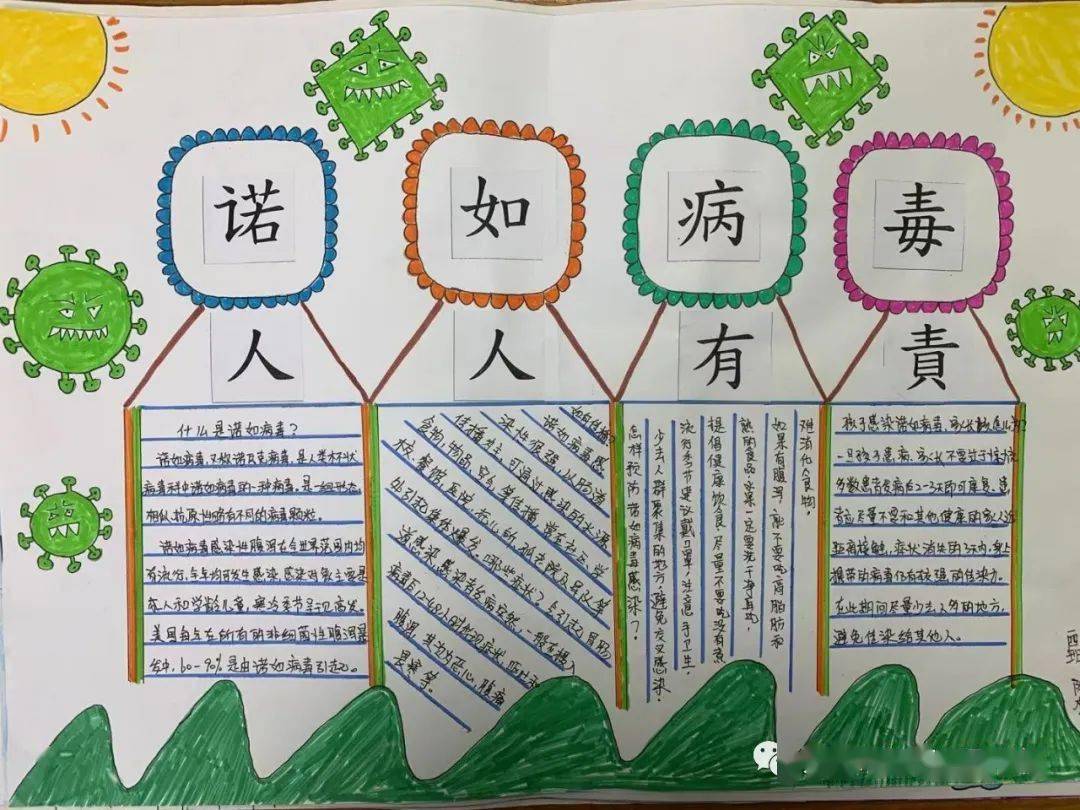 诺 如 病 毒
人 人 有 責
什么是诺如病毒?
诺如病毒,又称诺瓦克病毒,是人类杯状
病毒科中诺如病毒的一种病毒,是一组形态
相似,抗原性略有不同的病毒颗粒。
诺如病毒感染性腹泻在全世界范围内均
有流行,全年均可发生感染,感染对象主要是
成人和学龄儿童,寒冷季节呈现高发。
美国每年在所有的非细菌性腹泻暴
发中,60-90%是由诺如病毒引起。
如何传播?
诺如病毒感
染性很强,以肠道
传播为主,可通过感染的水源
食物、物品、空气等传播,常在社区、学
校、餐馆、医院、托儿所、孤老院及军队等
处引起集体爆发。哪些症状?是引起胃肠
道感染,感染者发病突然,一般在摄入
病毒后12-48小时出现症状,呕吐和
腹泻,其次为恶心、腹痛
畏寒等。
怎样预防诺如病毒感染了?
少去人群聚集的地方避免交叉感染。
流行季节建议戴口罩,注意手卫生,
提倡健康饮食,尽量不要吃没有煮
熟的食品,水果一定要洗干净再吃,
如果有腹泻,就不要吃高脂肪和
难消化食物。
孩子感染诺如病毒,家长该怎么办?
一旦孩子患病,家长不要过于惊慌
多数患者发病后2-3天即可康复,患
者应尽量不要和其他健康的家人近
距离接触,症状消失的3天内,身上
携带的病毒仍有较强的传染力。
在此期间尽量少去人多的地方,
避免传染给其他人。